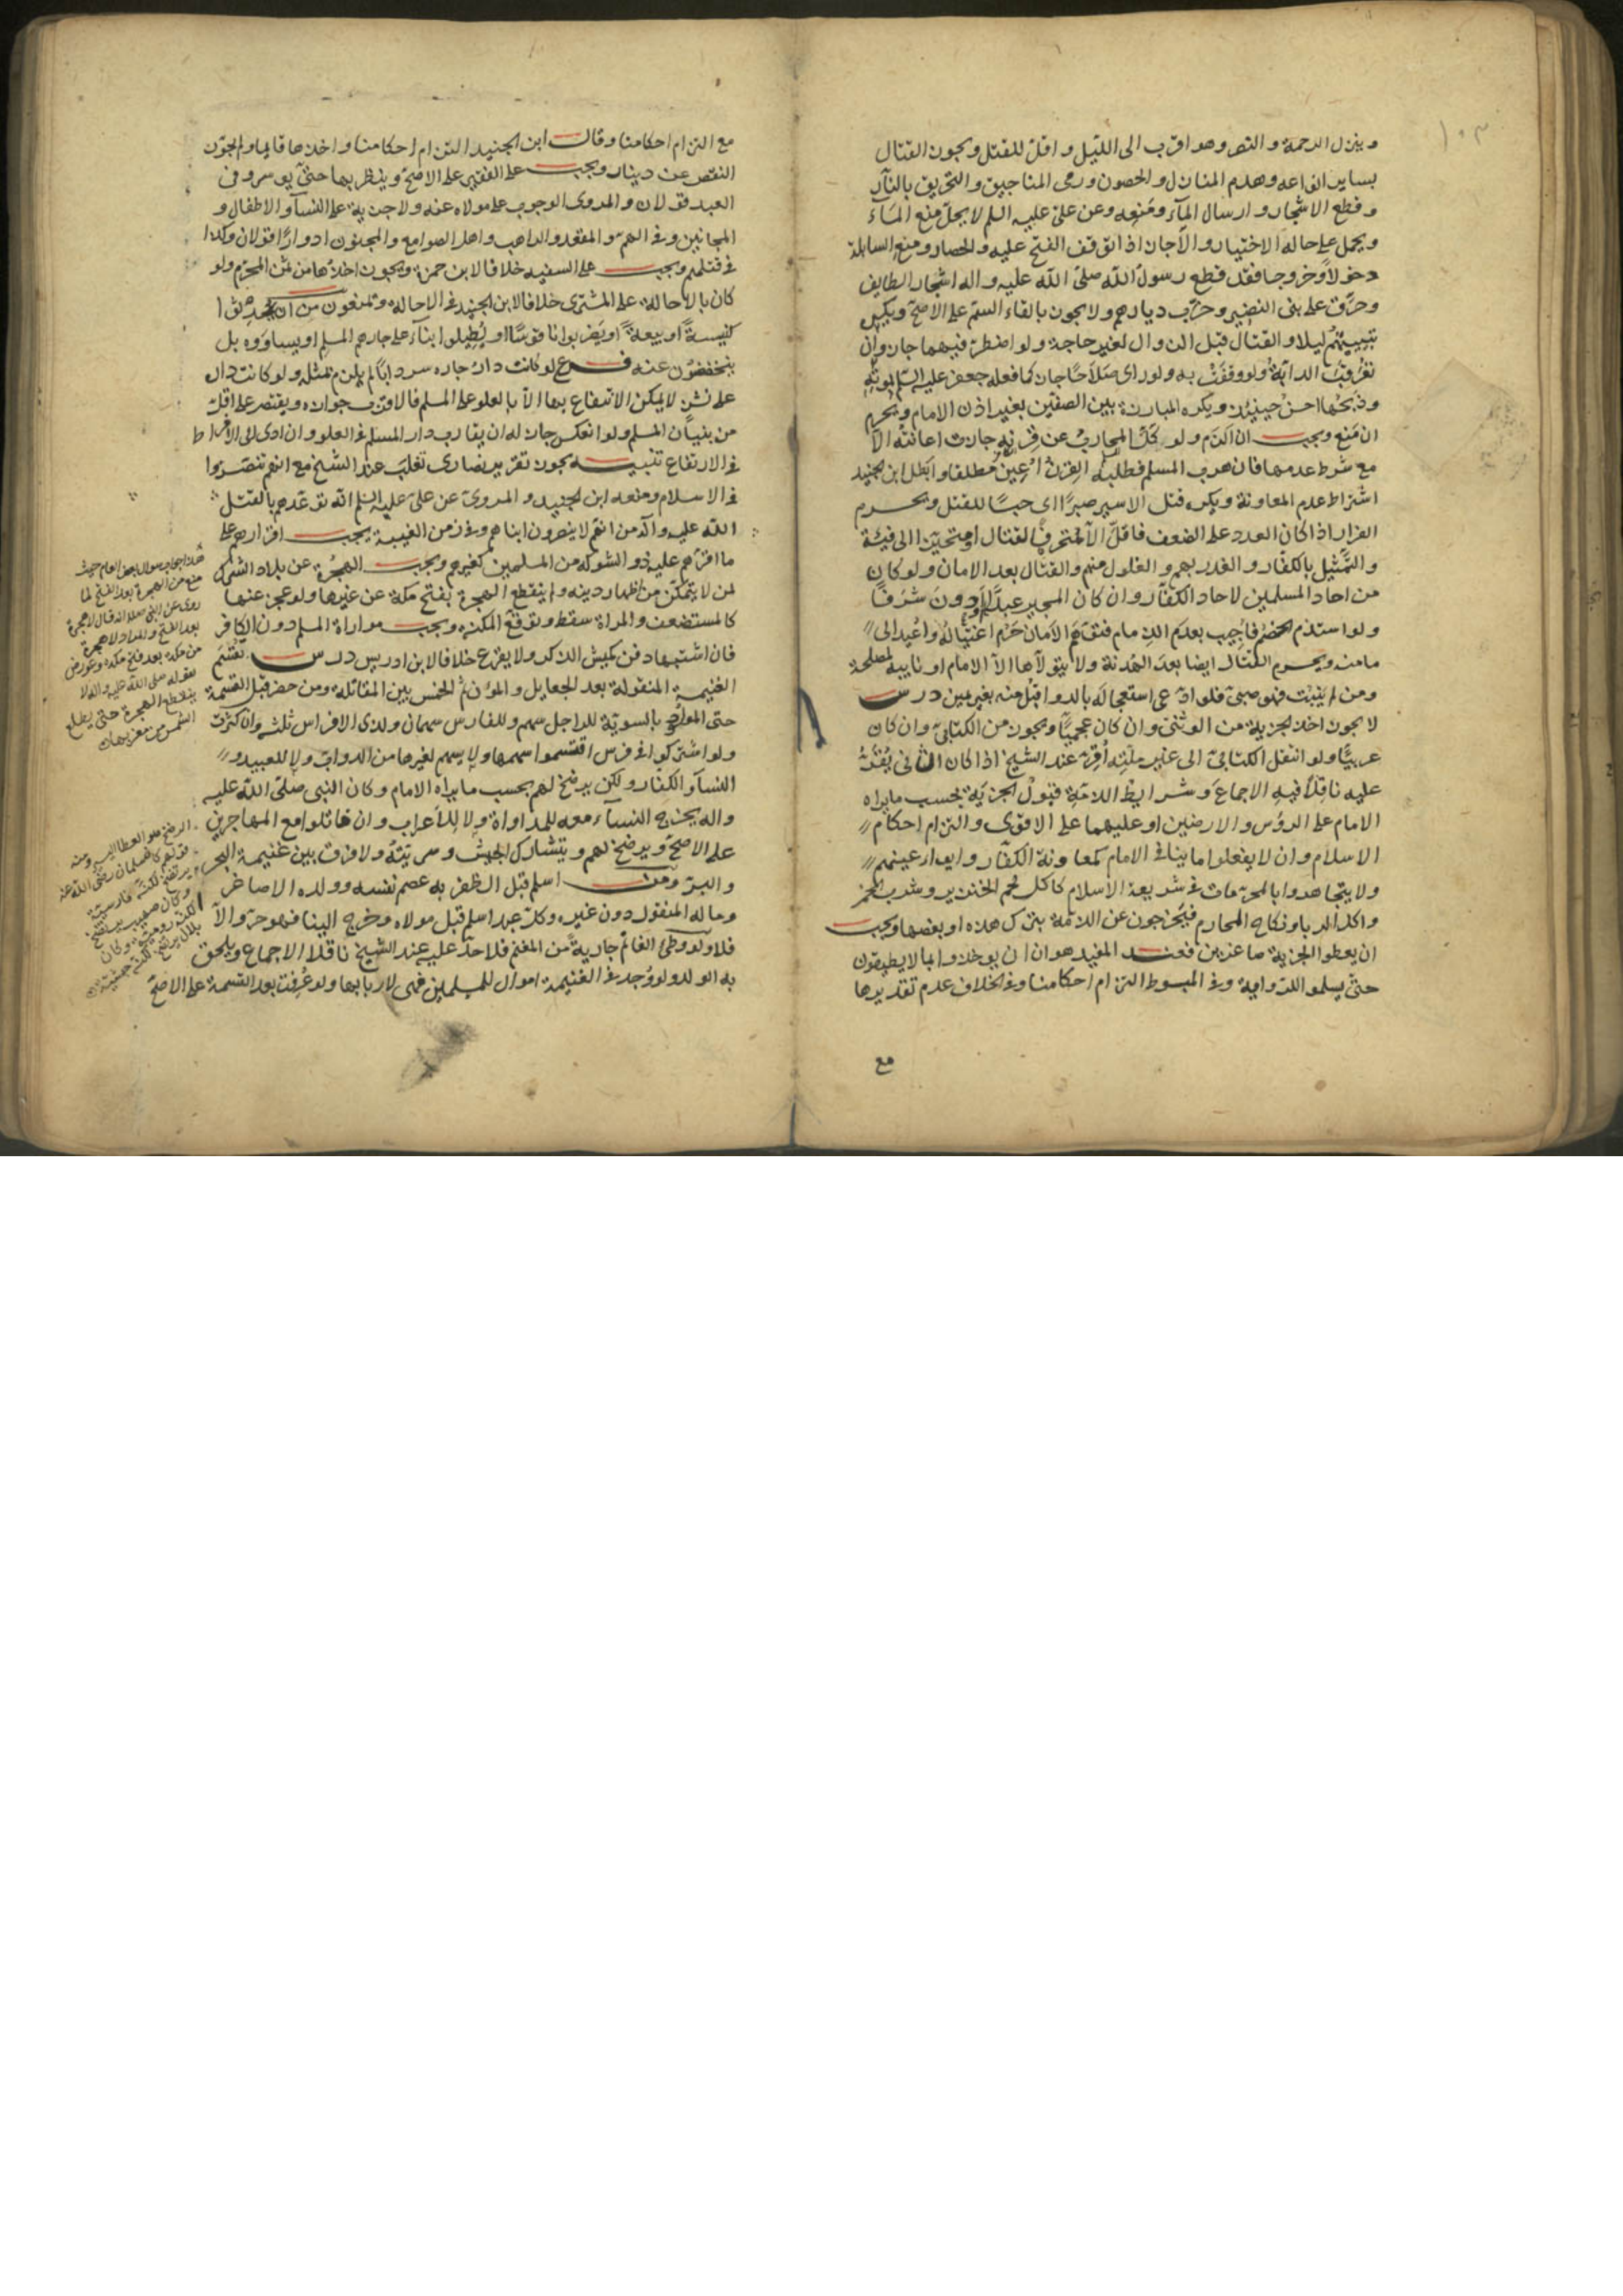 ١٠٣
وينزل الرحمة والنصر وهو اقرب الى الليل واقل للقتل ويجوز القتال
بساير انواعه وهدم المنازل والحصون ورمى المناجيق والتحريق بالنار
وقطع الاشجار وارسال المآء ومنعه وعن علىّ عليه السلم لا يحلّ منع المآء
ويحمل على حالة الاختيار والا جاز اذا توقف الفتح عليه والحصار ومنع السابلة
دخولاً وخروجا فقد قطع رسول الله صلىّ الله عليه واله اشجار الطايف
وحرّق على بنى النضير وخرّب ديارهم ولا يجوز بالقاء السمّ على الاصح ويكره
تبييتهم ليلا والقتال قبل الزوال لغير حاجة ولو اضطرّ فيهما جاز وان
تعرقب الدابّة ولو وقفت به ولو راى صلاحًا جاز كما فعله جعفر عليه السلم بموته
وذبحها احسن حينئذ ويكره المبارزة بين الصفّين بغير اذن الامام ويحرم
ان منع ويجب ان الزم ولو نكل المحارب عن قرنه جازت اعانته الا
مع شرط عدمها فان هرب المسلم فطلبه القرن اعين مطلقا وابطل ابن الجنيد
اشتراط عدم المعاونة ويكره قتل الاسير صبرًا اى حبسًا للقتل ويحرم
الفرار اذا كان العدد على الضعف فاقلّ الا لمتحرف لقتال او متحيّز الى فيئة
والتمثيل بالكفّار والغدر بهم والغلول منهم والقتال بعد الامان ولو كان
من احاد المسلمين لاحاد الكفّار وان كان المجير عبدًا او دون شرفًا
ولو استذم الخصم فاجيب بعدم الذمام فتوهّم الامان حرم اغتياله واعيد الى
مامنه ويحرم القتال ايضا بعد الهدنة ولا يتولاها الا الامام او نايبه لمصلحة
ومن لم ينبت فهو صبىّ فلو ادّعى استعجاله بالدوا قبل منه بغير يمين درس
لا يجوز اخذ الجزية من الوثنى وان كان عجميًّا ويجوز من الكتابىّ وان كان
عربيًّا ولو انتقل الكتابىّ الى غير ملّته اُقرّ عند الشيخ اذا كان الثانى يُقرّ
عليه ناقلًا فيه الاجماع وشرايط الذمّة قبول الجزية بحسب ما يراه
الامام على الرؤس والارضين او عليهما على الاقوى والتزام احكام
الاسلام وان لا يفعلوا ما ينافى الامام كمعاونة الكفّار وايوا عينهم
ولا يتجاهروا بالمحرّمات فى شريعة الاسلام كاكل لحم الخنزير وشرب الخمر
واكل الربا ونكاح المحارم فيخرجون عن الذمّة بترك هذه او بعضها ويجب
ان يعطوا الجزية صاغرين فعند المفيد هو ان يوخذوا بما لا يطيقون
حتى يسلموا والذوايه وفى المبسوط التزام احكامنا وفى الخلاف عدم تقديرها
مع
مع التزام احكامنا وقال ابن الجنيد التزام احكامنا واخذها قايما ولا يجوز
النقص عن دينار ويجب على الفقير على الاصح وينظر بها حتى يوسر وفى
العبد قولان والمروى الوجوب على مولاه عنه ولا جزية على النسآء والاطفال و
المجانين وفى الهمّ والمقعد والراهب واهل الصوامع والمجنون ادوارًا قولان وكذا
فى قتلهم ويجب على السفيه خلافا لابن حمزة ويجوز اخذها من ثمن المحرّم ولو
كان بالاحالة على المشترى خلافا لابن الجنيد فى الاحالة ويمنعون من ان يحدثوا
كنيسةً او بيعةً او يضربوا ناقوسًا او يُطيلوا بنآء على جارهم المسلم او يساووه بل
ينخفضون عنه فرع لو كانت دار جاره سردابًا لم يلزم بمثله ولو كانت دار
على نشز لا يمكن الانتفاع بها الا بالعلو على المسلم فالاقرب جوازه ويقتصر على اقلّ
من بنيان المسلم ولو انعكس جاز له ان يقارب دار المسلم فى العلو وان ادى الى الافراط
فى الارتفاع تنبيه يجوز تقرير نصارى تغلب عند الشيخ مع انهم تنصّروا
فى الاسلام ومنعه ابن الجنيد والمروى عن علىّ عليه السلم انّه توعّدهم بالقتل
الله عليه واله من انهم لا ينصرون ابناهم وفى زمن الغيبة يجب اقرارهم على
ما اقرّهم عليه ذو الشوكة من المسلمين كغيرهم ويجب الهجرة عن بلاد الشرك
لمن لا يتمكّن من اظهار دينه ولم ينقطع الهجرة بفتح مكة عن غيرها ولو عجز عنها
كالمستضعف والمراة سقط وتوقع المكنة ويجب مواراة المسلم دون الكافر
فان اشتبها دفن كميش الذكر ولا يقرع خلافا لابن ادريس درس تُقسّم
الغنيمة المنقولة بعد الجعايل والمؤن ثم الخمس بين المقاتلة ومن حضر قبل القسمة
حتى المولود بالسويّة للراجل سهم وللفارس سهمان ولذى الافراس ثلثه وان كثرت
ولو اشتركوا فى فرس اقتسموا سهمها ولا يسهم لغيرها من الدواب ولا للعبيد و
النسآء والكفّار ولكن يرضخ لهم بحسب ما يراه الامام وكان النبى صلىّ الله عليه
واله يخرج النسآء معه للمداواة ولا للاعراب وان قاتلوا مع المهاجرين
على الاصح ويرضخ لهم ويتشارك الجيش وسريّته ولا فرق بين غنيمة البحر
والبرّ ومن اسلم قبل الظفر به عصم نفسه وولده الاصاغر
وماله المنقول دون غيره وكلّ عبد اسلم قبل مولاه وخرج الينا فهو حرّ والا
فلا ولو وطئ الغانم جاريةً من المغنم فلا حدّ عليه عند الشيخ ناقلا الاجماع ويلحق
به الولد ولو وُجد فى الغنيمة اموال للمسلمين فهى لاربابها ولو عُرفت بعد القسمة على الاصحّ
هذا جواب سوال بعض العام حيث
منع من الهجرة بعد الفتح لما
روى عن النبى صلعم انه قال لا هجرة
بعد الفتح والمراد لا هجرة
من مكة بعد فتح مكه وعورض
بقوله صلى الله عليه واله لا
ينقطع الهجرة حتى يطلع
الشمس من مغربها
الرضخ هو العطا اليسير ومنه
قولهم كان سلمان رضى الله عنه
يرتضخ لكنة فارسية
وكان صهيب يرتضخ
لكنة رومية وكان
بلال يرتضخ لكنة حبشية